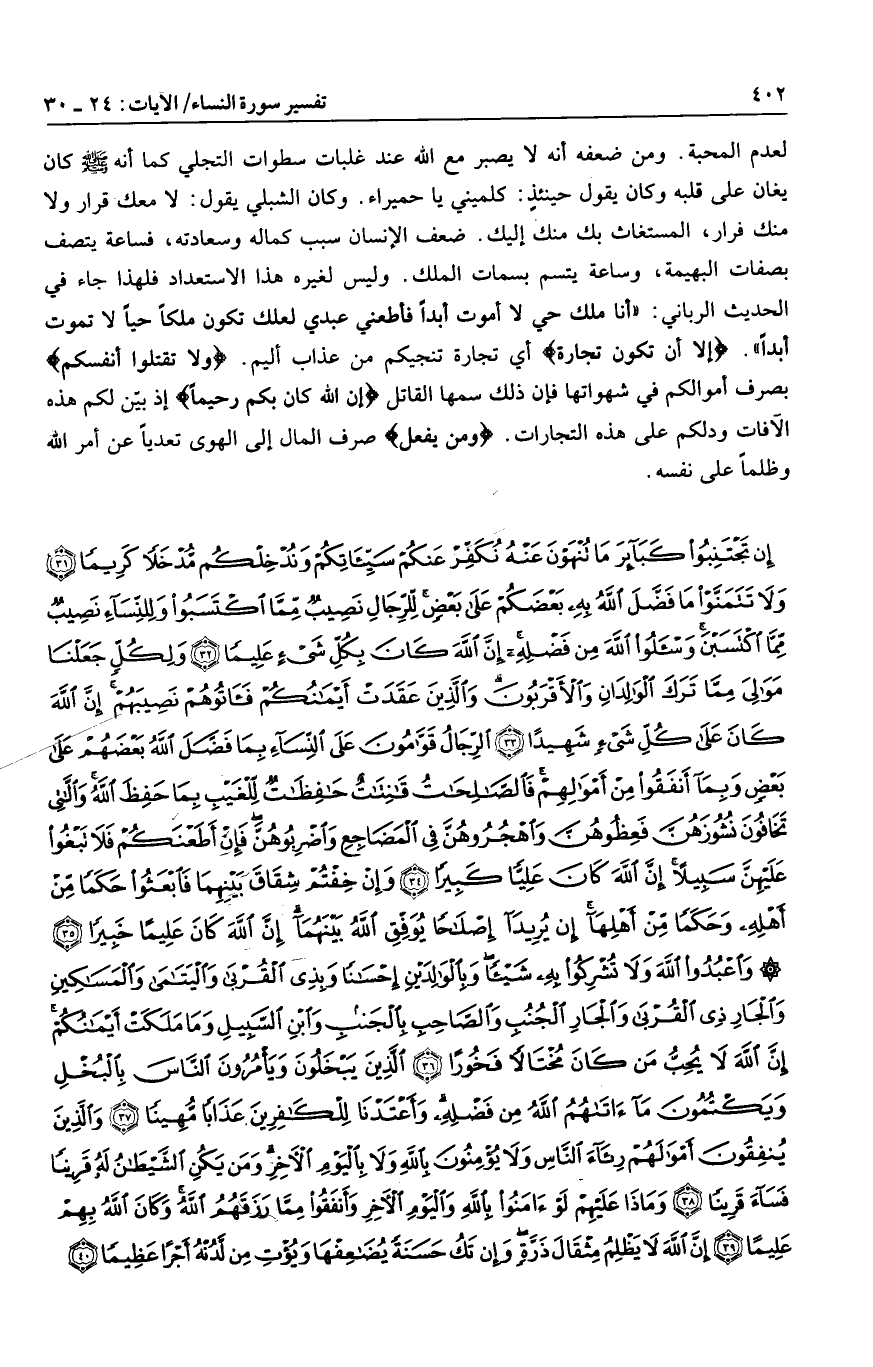 ٤٠٢
تفسير سورة النساء/ الآيات: ٢٤ ـ ٣٠
لعدم المحبة. ومن ضعفه أنه لا يصبر مع الله عند غلبات سطوات التجلي كما أنه ﷺ كان
يغان على قلبه وكان يقول حينئذٍ: كلميني يا حميراء. وكان الشبلي يقول: لا معك قرار ولا
منك فرار، المستغاث بك منك إليك. ضعف الإنسان سبب كماله وسعادته، فساعة يتصف
بصفات البهيمة، وساعة يتسم بسمات الملك. وليس لغيره هذا الاستعداد فلهذا جاء في
الحديث الرباني: «أنا ملك حي لا أموت أبداً فأطعني عبدي لعلك تكون ملكاً حياً لا تموت
أبداً». ﴿إلا أن تكون تجارة﴾ أي تجارة تنجيكم من عذاب أليم. ﴿ولا تقتلوا أنفسكم﴾
بصرف أموالكم في شهواتها فإن ذلك سمها القاتل ﴿إن الله كان بكم رحيماً﴾ إذ بيّن لكم هذه
الآفات ودلكم على هذه التجارات. ﴿ومن يفعل﴾ صرف المال إلى الهوى تعدياً عن أمر الله
وظلماً على نفسه.
إِن تَجْتَنِبُوا۟ كَبَآئِرَ مَا تُنْهَوْنَ عَنْهُ نُكَفِّرْ عَنكُمْ سَيِّـَٔاتِكُمْ وَنُدْخِلْكُم مُّدْخَلًا كَرِيمًا ٣١
وَلَا تَتَمَنَّوْا۟ مَا فَضَّلَ ٱللَّهُ بِهِۦ بَعْضَكُمْ عَلَىٰ بَعْضٍ ۚ لِّلرِّجَالِ نَصِيبٌ مِّمَّا ٱكْتَسَبُوا۟ وَلِلنِّسَآءِ نَصِيبٌ
مِّمَّا ٱكْتَسَبْنَ ۚ وَسْـَٔلُوا۟ ٱللَّهَ مِن فَضْلِهِۦٓ ۗ إِنَّ ٱللَّهَ كَانَ بِكُلِّ شَىْءٍ عَلِيمًا ٣٢ وَلِكُلٍّ جَعَلْنَا
مَوَٰلِىَ مِمَّا تَرَكَ ٱلْوَٰلِدَانِ وَٱلْأَقْرَبُونَ ۚ وَٱلَّذِينَ عَقَدَتْ أَيْمَٰنُكُمْ فَـَٔاتُوهُمْ نَصِيبَهُمْ ۚ إِنَّ ٱللَّهَ
كَانَ عَلَىٰ كُلِّ شَىْءٍ شَهِيدًا ٣٣ ٱلرِّجَالُ قَوَّٰمُونَ عَلَى ٱلنِّسَآءِ بِمَا فَضَّلَ ٱللَّهُ بَعْضَهُمْ عَلَىٰ
بَعْضٍ وَبِمَآ أَنفَقُوا۟ مِنْ أَمْوَٰلِهِمْ ۚ فَٱلصَّٰلِحَٰتُ قَٰنِتَٰتٌ حَٰفِظَٰتٌ لِّلْغَيْبِ بِمَا حَفِظَ ٱللَّهُ ۚ وَٱلَّٰتِى
تَخَافُونَ نُشُوزَهُنَّ فَعِظُوهُنَّ وَٱهْجُرُوهُنَّ فِى ٱلْمَضَاجِعِ وَٱضْرِبُوهُنَّ ۖ فَإِنْ أَطَعْنَكُمْ فَلَا تَبْغُوا۟
عَلَيْهِنَّ سَبِيلًا ۗ إِنَّ ٱللَّهَ كَانَ عَلِيًّا كَبِيرًا ٣٤ وَإِنْ خِفْتُمْ شِقَاقَ بَيْنِهِمَا فَٱبْعَثُوا۟ حَكَمًا مِّنْ
أَهْلِهِۦ وَحَكَمًا مِّنْ أَهْلِهَآ ۚ إِن يُرِيدَآ إِصْلَٰحًا يُوَفِّقِ ٱللَّهُ بَيْنَهُمَآ ۗ إِنَّ ٱللَّهَ كَانَ عَلِيمًا خَبِيرًا ٣٥
۞ وَٱعْبُدُوا۟ ٱللَّهَ وَلَا تُشْرِكُوا۟ بِهِۦ شَيْـًٔا ۖ وَبِٱلْوَٰلِدَيْنِ إِحْسَٰنًا وَبِذِى ٱلْقُرْبَىٰ وَٱلْيَتَٰمَىٰ وَٱلْمَسَٰكِينِ
وَٱلْجَارِ ذِى ٱلْقُرْبَىٰ وَٱلْجَارِ ٱلْجُنُبِ وَٱلصَّاحِبِ بِٱلْجَنۢبِ وَٱبْنِ ٱلسَّبِيلِ وَمَا مَلَكَتْ أَيْمَٰنُكُمْ ۗ
إِنَّ ٱللَّهَ لَا يُحِبُّ مَن كَانَ مُخْتَالًا فَخُورًا ٣٦ ٱلَّذِينَ يَبْخَلُونَ وَيَأْمُرُونَ ٱلنَّاسَ بِٱلْبُخْلِ
وَيَكْتُمُونَ مَآ ءَاتَىٰهُمُ ٱللَّهُ مِن فَضْلِهِۦ ۗ وَأَعْتَدْنَا لِلْكَٰفِرِينَ عَذَابًا مُّهِينًا ٣٧ وَٱلَّذِينَ
يُنفِقُونَ أَمْوَٰلَهُمْ رِئَآءَ ٱلنَّاسِ وَلَا يُؤْمِنُونَ بِٱللَّهِ وَلَا بِٱلْيَوْمِ ٱلْـَٔاخِرِ ۗ وَمَن يَكُنِ ٱلشَّيْطَٰنُ لَهُۥ قَرِينًا
فَسَآءَ قَرِينًا ٣٨ وَمَاذَا عَلَيْهِمْ لَوْ ءَامَنُوا۟ بِٱللَّهِ وَٱلْيَوْمِ ٱلْـَٔاخِرِ وَأَنفَقُوا۟ مِمَّا رَزَقَهُمُ ٱللَّهُ ۚ وَكَانَ ٱللَّهُ بِهِمْ
عَلِيمًا ٣٩ إِنَّ ٱللَّهَ لَا يَظْلِمُ مِثْقَالَ ذَرَّةٍ ۖ وَإِن تَكُ حَسَنَةً يُضَٰعِفْهَا وَيُؤْتِ مِن لَّدُنْهُ أَجْرًا عَظِيمًا ٤٠